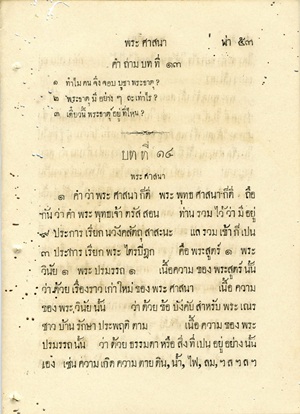 พระ ศาสนา น่า ๕๓
คำ ถาม บท ที่ ๑๓
๑ ทำไม คน จึ่ง ชอบ บูชา พระธาตุ?
๒ พระธาตุ มี อย่าง ๆ จะเท่าไร?
๓ เดี๋ยวนี้ พระธาตุ อยู่ ที่ไหน?
บท ที่ ๑๔
พระ ศาสนา
๑ คำ ว่า พระ ศาสนา ก็ดี พระ พุทธ ศาสนา ก็ดี ถือ
กัน ว่า คำ พระ พุทธเจ้า ตรัส สอน ท่าน รวม ไว้ ว่า มี อยู่
๙ ประการ เรียก นวังคสัตถุ สาสะนะ แล รวม เข้า ที่ เปน
๓ ประการ เรียก พระ ไตรปิฎก คือ พระสูตร์ ๑ พระ
วินัย ๑ พระ ปรมรรถ ๑ เนื้อความ ของ พระสูตร์ นั้น
ว่า ด้วย เรื่องราว เก่า ใหม่ ของ พระ ศาสนา เนื้อ ความ
ของ พระ วินัย นั้น ว่า ด้วย ข้อ บังคับ สำหรับ พระ เณร
ชาว บ้าน รักษา ประพฤติ ตาม เนื้อ ความ ของ พระ
ปรมรรถ นั้น ว่า ด้วย ธรรมดา หรือ สิ่ง ที่ เปน อยู่ อย่าง นั้น
เอง เช่น ความ เกิด ความ ตาย ดิน, น้ำ, ไฟ, ลม, ฯลฯลฯ